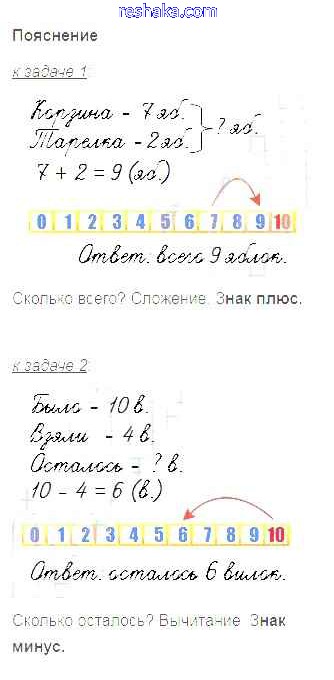 reshaka.com
Пояснение
к задаче 1:
Корзина - 7 яб.
Тарелка - 2 яб.
? яб.
7 + 2 = 9 (яб.)
0 1 2 3 4 5 6 7 8 9 10
Ответ: всего 9 яблок.
Сколько всего? Сложение. Знак плюс.
к задаче 2:
Было - 10 в.
Взяли - 4 в.
Осталось - ? в.
10 - 4 = 6 (в.)
0 1 2 3 4 5 6 7 8 9 10
Ответ: осталось 6 вилок.
Сколько осталось? Вычитание. Знак
минус.